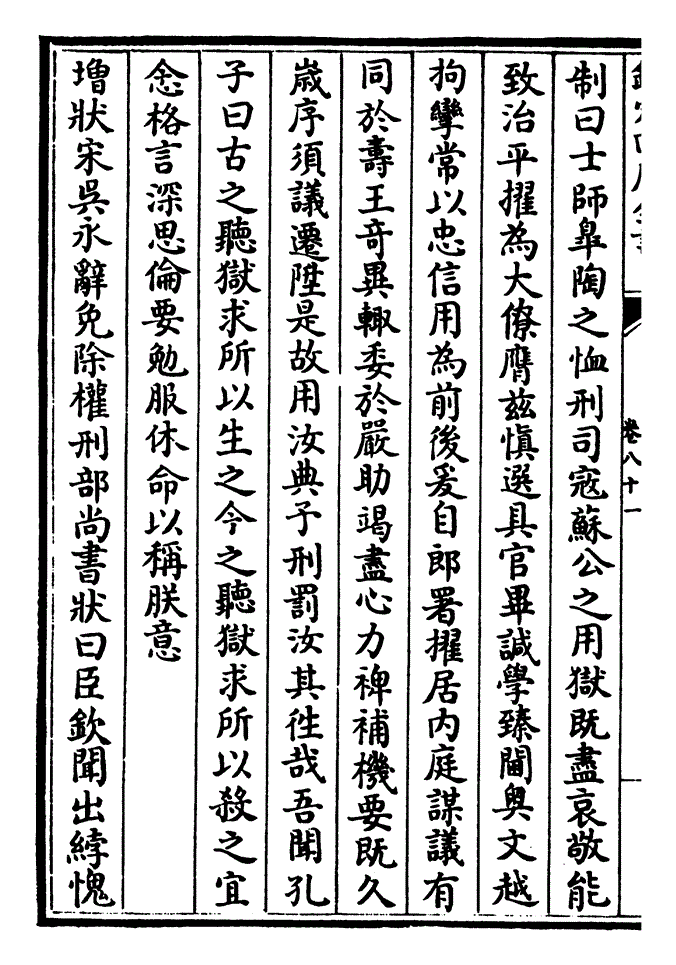 卷八十一
制曰士師臯陶之恤刑司寇蘇公之用獄既盡哀敬能
致治平擢為大僚膺兹慎選具官畢諴學臻閫奥文越
拘攣常以忠信用為前後爰自郎署擢居内庭謀議有
同於壽王竒異輙委於嚴助竭盡心力禆補機要既久
歳序須議遷陞是故用汝典予刑罰汝其徃哉吾聞孔
子曰古之聽獄求所以生之今之聽獄求所以殺之宜
念格言深思倫要勉服休命以稱朕意
増狀宋吳永辭免除權刑部尚書狀曰臣欽聞出綍愧